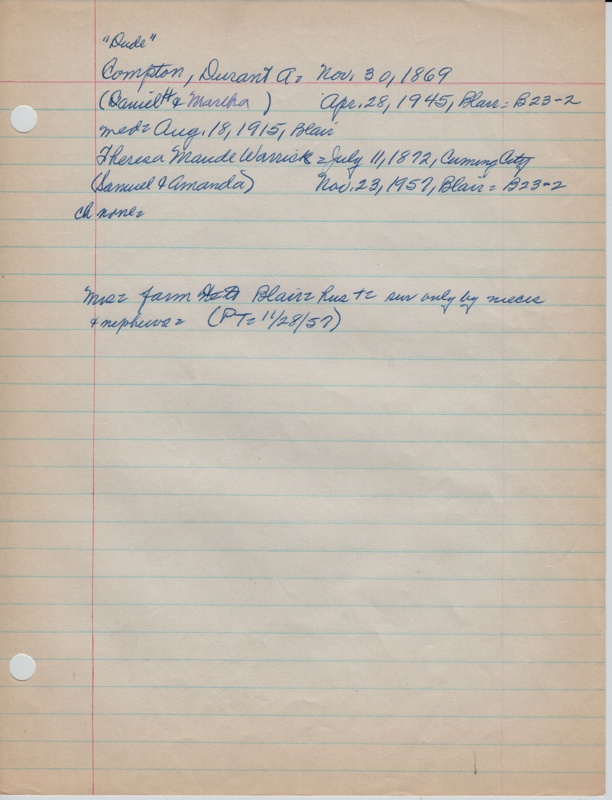 "Dude"
Compton, Durant A= Nov. 30, 1869
(Daniel H & Martha ) Apr. 28, 1945, Blair= B23-2
med= Aug. 18, 1915, Blair
Theresa Maude Warrick = July 11, 1872, Cuming City
(Samuel & Amanda) Nov. 23, 1957, Blair= B23-2
ch none=
Mrs= farm Blair= hus += sur only by nieces
& nephews= (PT= 11/28/57)